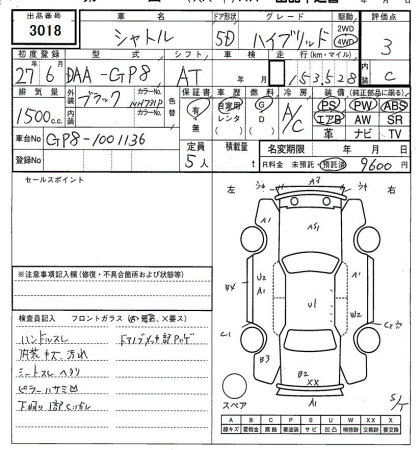 出品番号 車名 ドア形状 グレード 駆動 評価点
3018 シャトル 5D ハイブリッド 2WD 4WD 3
初度登録 型式 シフト 車検 走行(km・マイル) 内装
27年6月 DAA-GP8 AT 年 月 153528 C
排気量 外装色 カラーNo. 色替 保証書 車歴 燃料 冷房 装備(純正部品に限る)
1500c.c. ブラック NH731P 有・無 自家用 レンタ G D A/C PS PW ABS
内装色 カラーNo. エアB AW SR
革 ナビ TV
車台No GP8-1001136 定員 積載量 名変期限 年 月 日
登録No 5人 t R料金 未預託・預託済 9600円
セールスポイント
左 右
A3
A1 AS1
B4 U2 A1 U1 A1 W2
C1
B3 B2 XX
スペア A1 S/T
※注意事項記入欄(修復・不具合箇所および状態等)
検査員記入 フロントガラス
ハンドルスレ
内装キズ、汚れ
シートスレ ヘタリ
ピラーハサミ凹
A B C P S U W XX X
線キズ 要板金 腐食 要塗装 サビ 凹凸 補修跡 交換跡 要交換